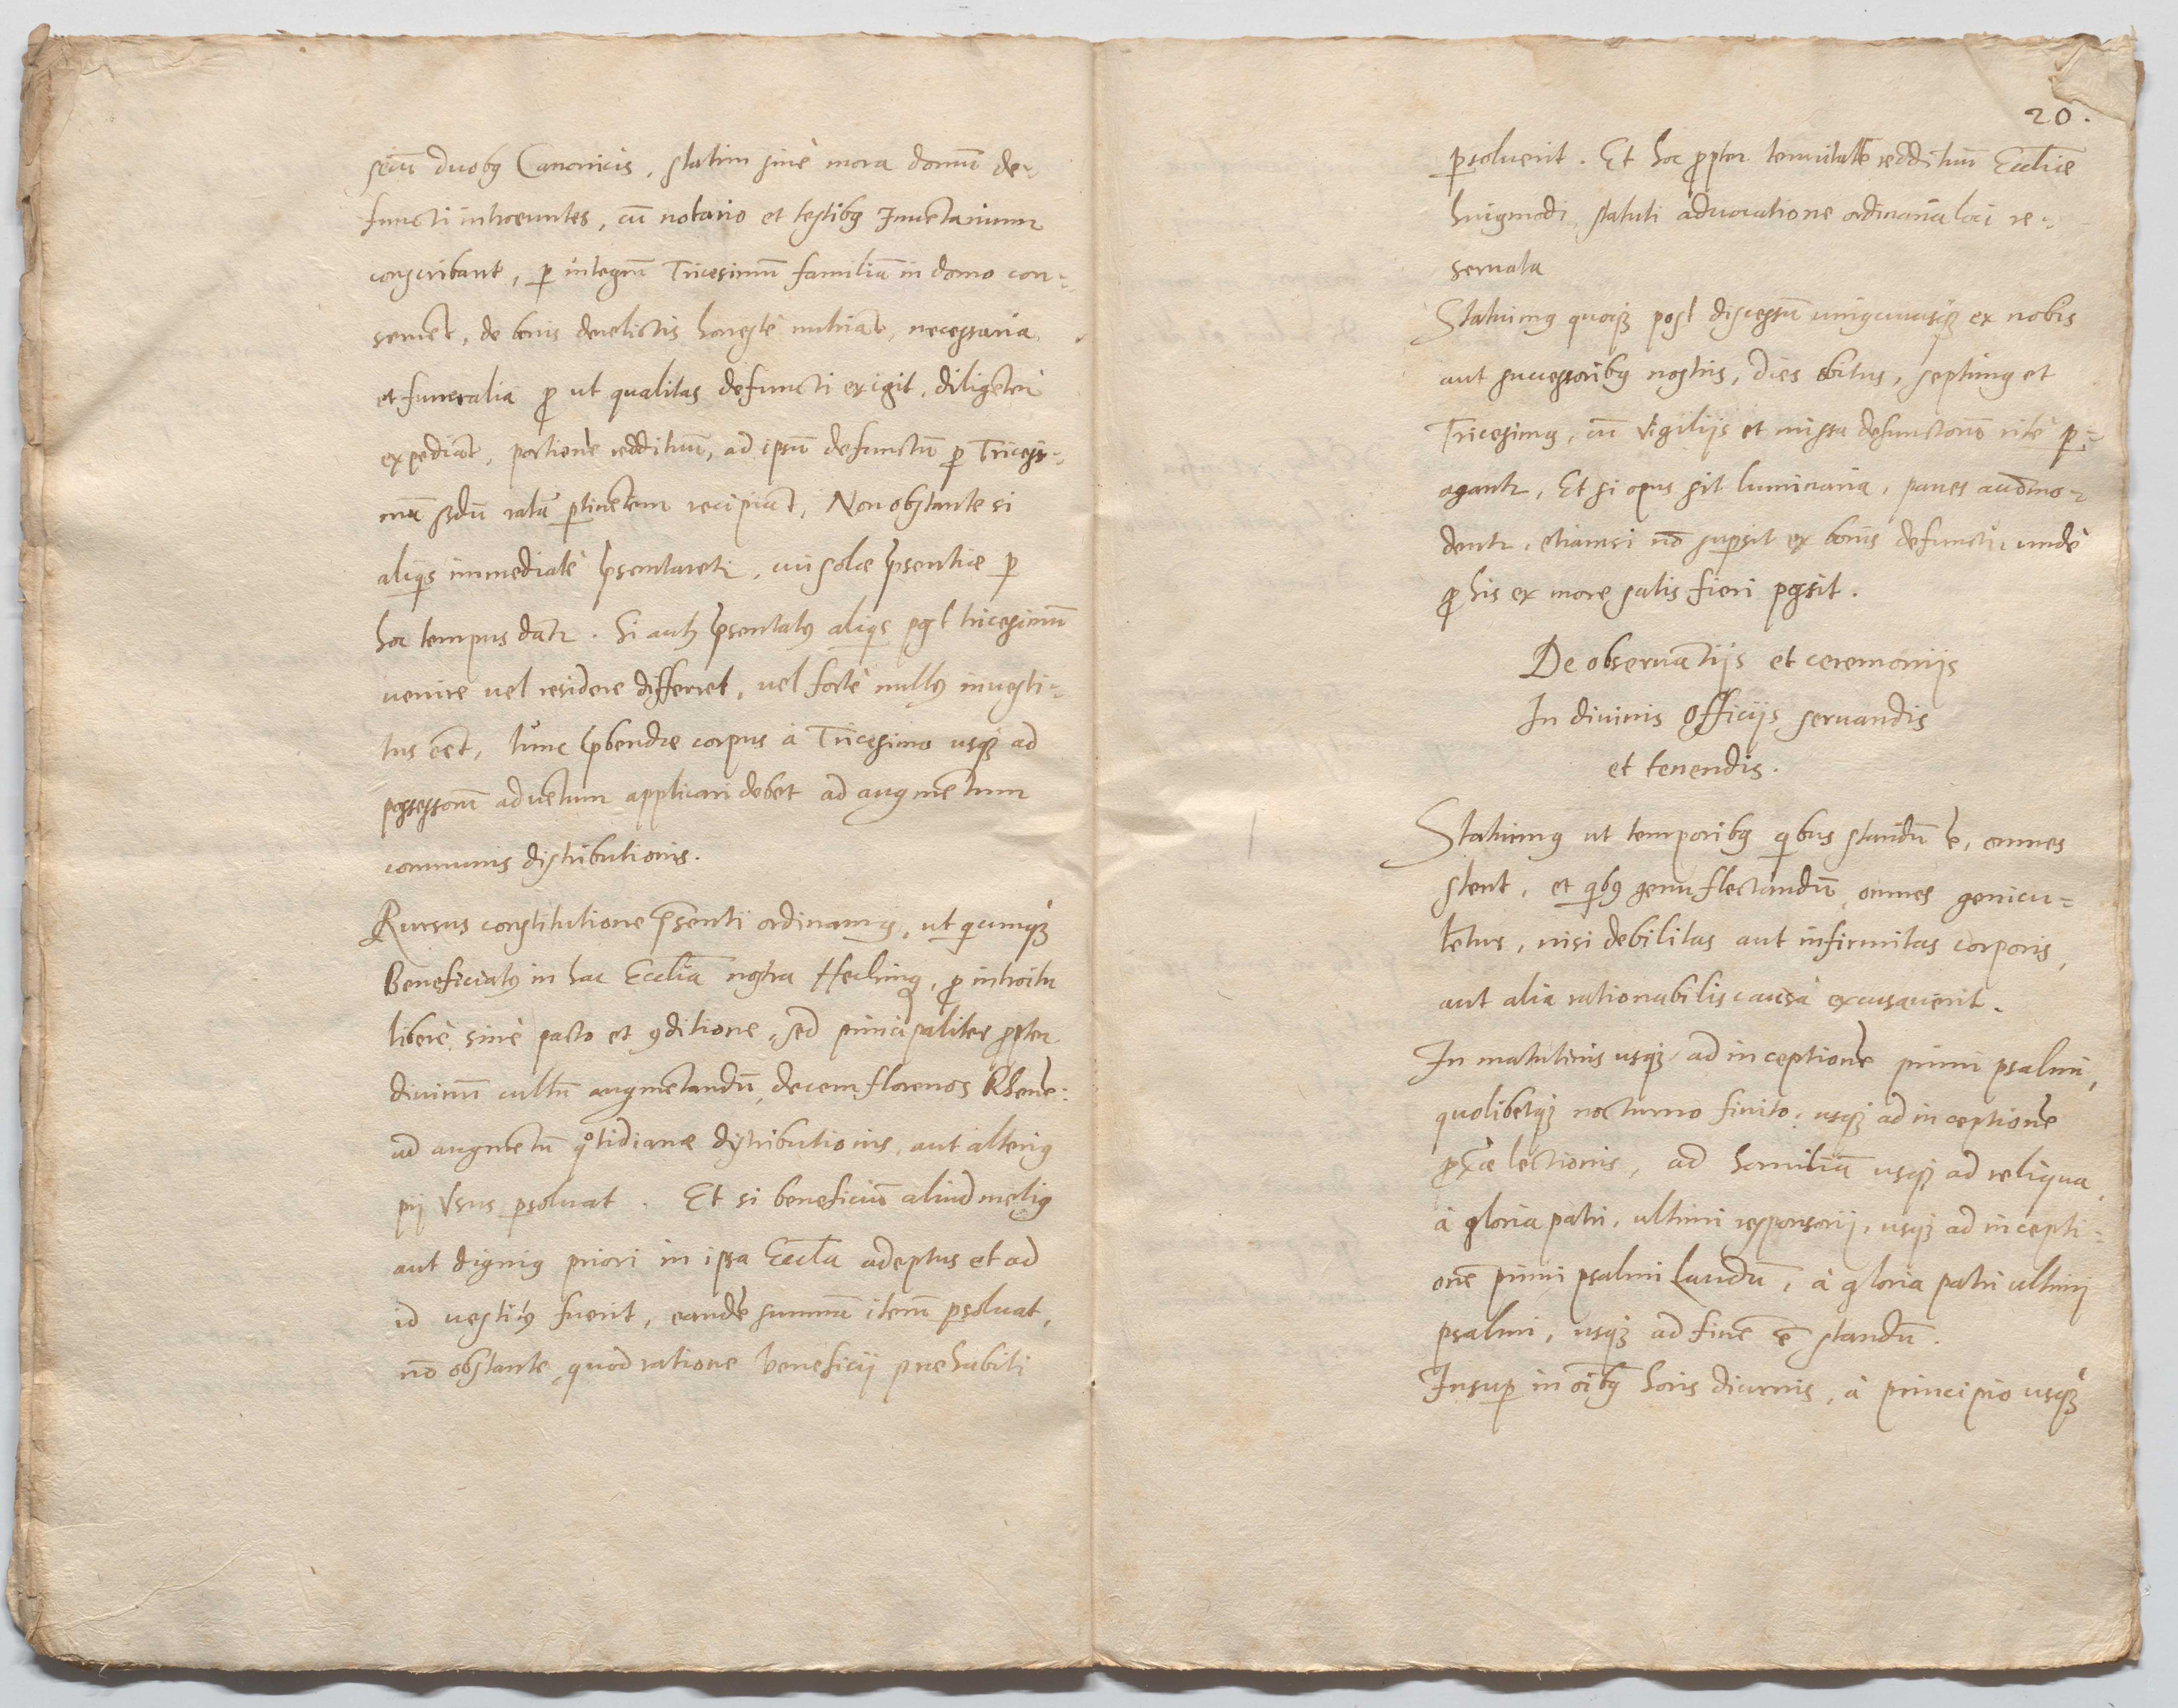 secū duobꝰ Canonicis, statim sinè mora domū de-
functi introeuntes, cū notario et testibꝰ Inuentarium
conscribant, ꝑ integrū Tricesimū familiā in domo con-
seruēt, de bonis derelictis honestè nutriāt, necessaria
et funeralia ꝓ ut qualitas defuncti exigit, diligēter
expediāt, portionē reddituū, ad ipsū defunctū ꝑ Tricesi-
mū scdū ratā ꝑtinētem recipiāt, Non obstante si
aliqis immediatè p̄sentaretr, cui solæ p̄sentiæ ꝑ
hoc tempus dātr. Si autē p̄sentatꝰ aliqis post tricesimū
venire uel residere differret, uel fortè nullꝰ inuesti-
tus eēt, tunc p̄bendæ corpus à Tricesimo usqꝫ ad
possessorū aduētum applicari debet ad augmētum
communis distributionis.
Rursus constitutione p̄senti ordinamꝰ, ut qicunqꝫ
Beneficiatꝰ in hac Ecclīa nostra Hechingꝭ, ꝓ introitu
liberè, sinè pacto et ꝯditione, sed principaliter ꝓpter
diuinū cultū augmētandū, decem florenos Rhene:
ad augmētū qotidianæ distributionis, aut alteriꝰ
pij Vsus ꝑsoluat. Et si beneficiū aliud meliꝰ
aut digniꝰ priori in ipsa Eccl̄a adeptus et ad
id uestitꝰ fuerit, eandē summā iterū ꝑsoluat,
nō obstante, quod ratione beneficij præhabiti
20.
ꝑsoluerit. Et hoc ꝓpter tenuitatē reddituū Eccliæ
huiꝰmodi statuti aduocatione ordinaria loci re-
seruata
Statuimꝰ quoqꝫ post discessū uniꝰcuiusqꝫ ex nobis
aut successoribꝰ nostris, dies obitus, septimꝰ et
Tricesimꝰ, cū Vigilijs et missa defunctorū ritè ꝑ-
agantr, Et si opus sit luminaria, panes accōmo-
dentr, etiamsi nō suꝑsit ex bonis defuncti, undè
ꝓ his ex more satis fieri possit.
De obseruātijs et ceremonijs
In diuinis Officijs seruandis
et tenendis.
Statuimꝰ ut temporibꝰ qibus standū ē, omnes
stent, et qibꝰ genu flectandū, omnes genicu-
lētur, nisi debilitas aut infirmitas corporis,
aut alia rationabilis causa excusauerit.
In matutinis usqꝫ ad inceptionē primi psalmi,
quolibetqꝫ nocturno finito, usqꝫ ad inceptionē
ꝓx̄æ lectionis, ad homiliā usqꝫ ad reliqua,
à gloria patri, ultimi responsorij, usqꝫ ad incepti-
onē primi psalmi Laudū, à gloria patri ultimi
psalmi, usqꝫ ad finē ē standū.
Insuꝑ in oībꝰ horis diurnis, à principio usqꝫ